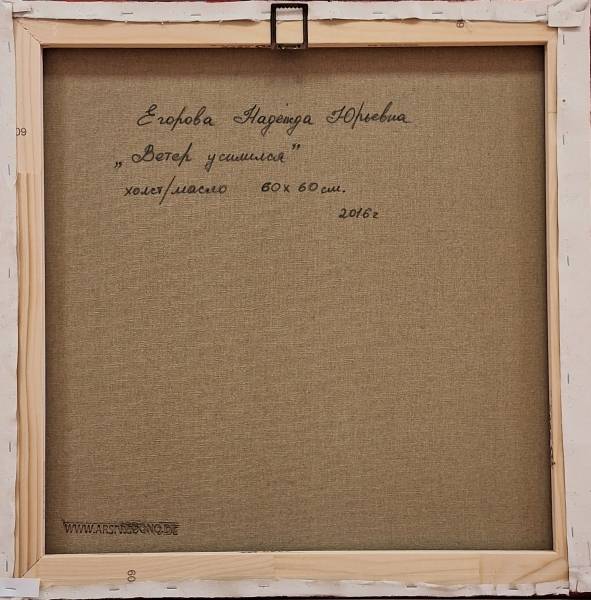 Егорова Надежда Юрьевна
„Ветер усилился”
холст/масло 60 х 60 см.
2016г
60
60